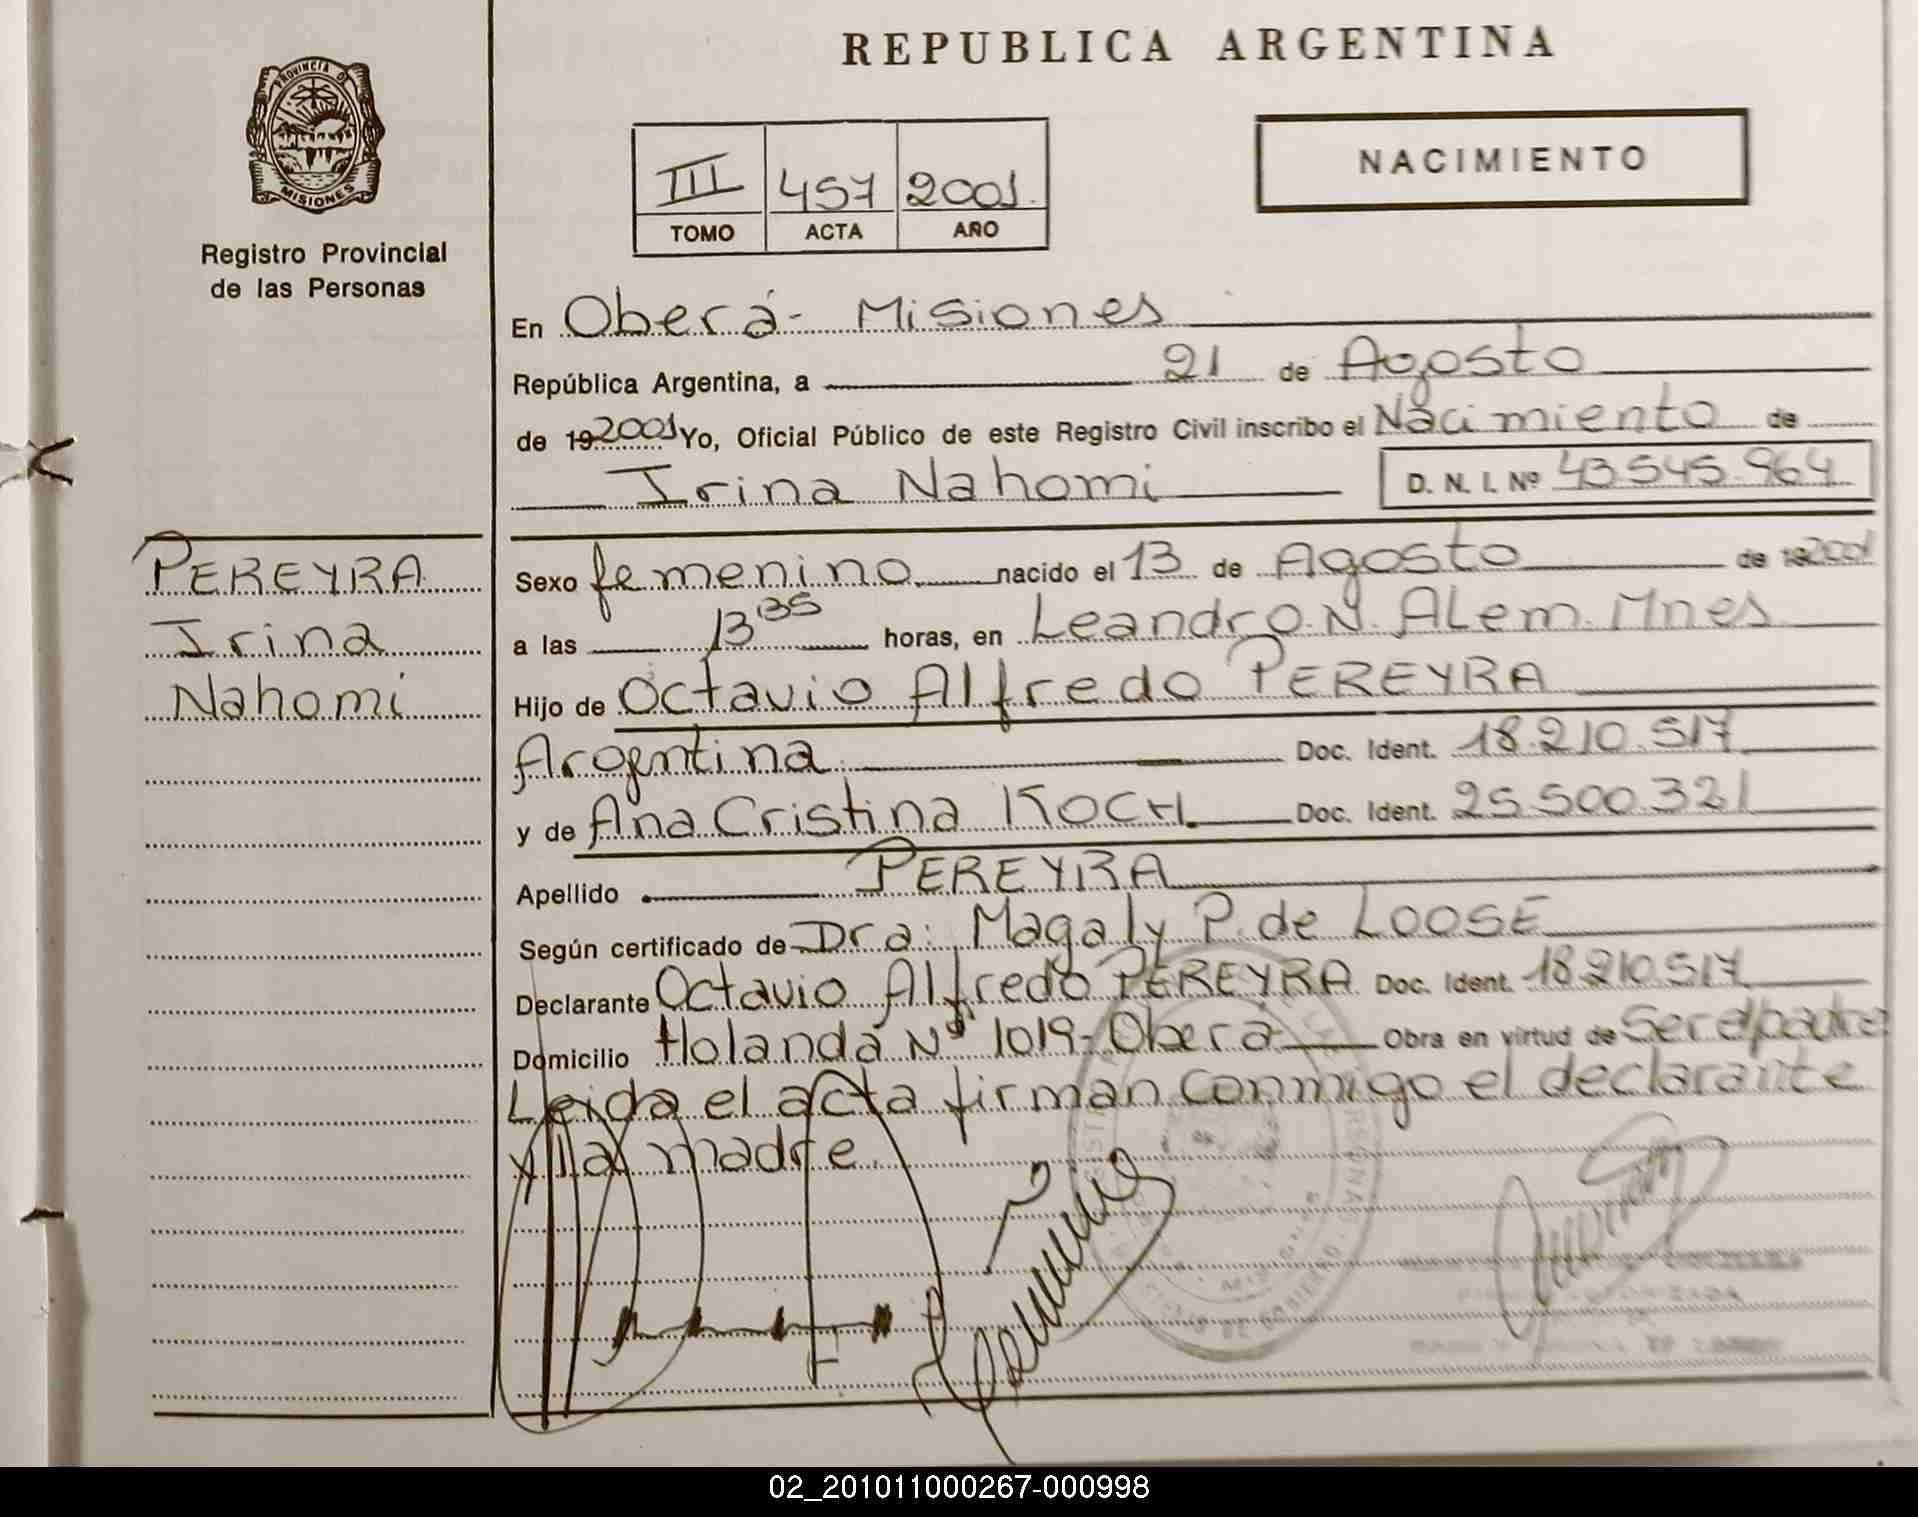 REPUBLICA ARGENTINA
PROVINCIA DE
MISIONES
Registro Provincial
de las Personas
III 457 2001.
TOMO ACTA AÑO
NACIMIENTO
En Oberá - Misiones
República Argentina, a 21 de Agosto
de 19 2001 Yo, Oficial Público de este Registro Civil inscribo el Nacimiento de
Irina Nahomi D. N. I. Nº 43.545.964
PEREYRA
Irina
Nahomi
Sexo femenino nacido el 13 de Agosto de 19 2001
a las 13 35 horas, en Leandro N. Alem. Mnes
Hijo de Octavio Alfredo PEREYRA
Argentina Doc. Ident. 18.210.517
y de Ana Cristina KOCH. Doc. Ident. 25.500.321
Apellido PEREYRA
Según certificado de Dra: Magaly P. de LOOSE
Declarante Octavio Alfredo PEREYRA Doc. Ident. 18.210.517
Domicilio Holanda Nº 1019-Oberá Obra en virtud de Ser el padre
Leida el acta firman conmigo el declarante
y la madre.
02_201011000267-000998